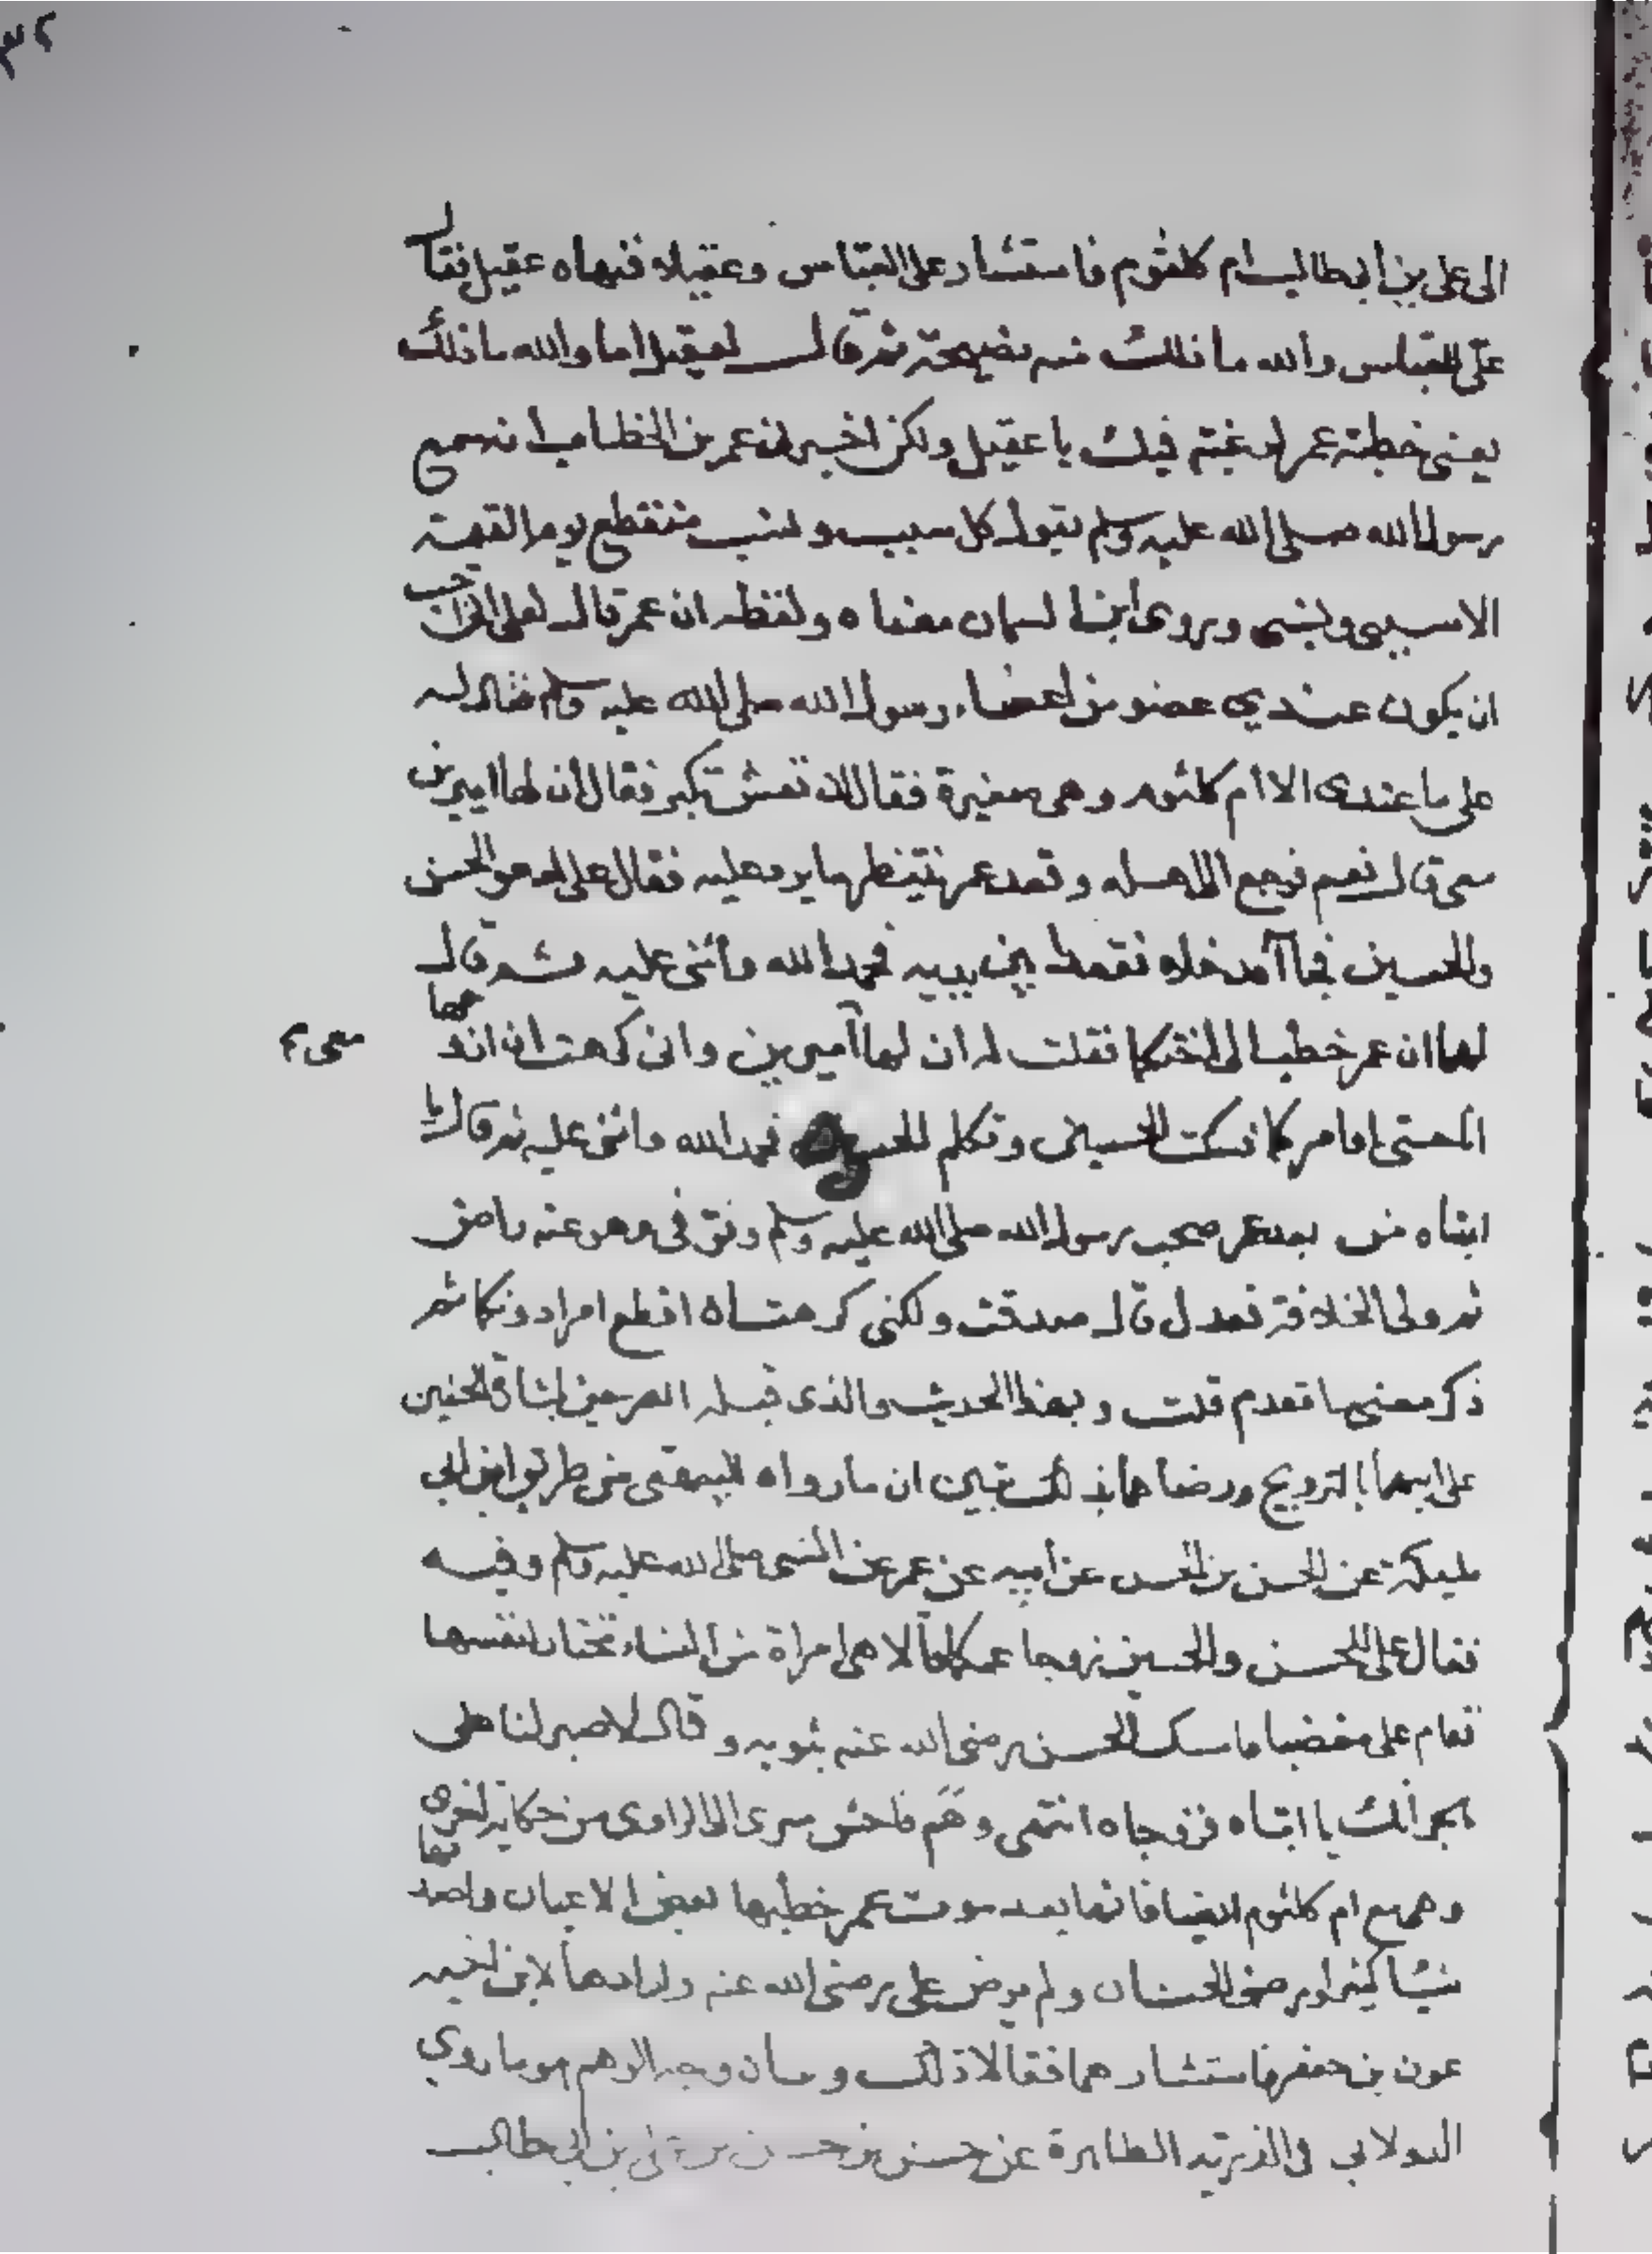 ٣٢
الى على بن ابى طالب ام كلثوم فاستشار على العباس وعقيلا فنهاه عقيل فقال
على للعباس والله ما ذلك منه نصيحة ثم قال لعقيل اما والله ما ذلك
يعنى خطبة عمر لرغبتم فيك يا عقيل ولكن اخبرنى عمر بن الخطاب انه سمع
رسول الله صلى الله عليه وسلم يقول كل سبب ونسب منقطع يوم القيمة
الاسببى ونسبى وروى ابن السمان معناه ولفظه ان عمر قال لعلى انى احب
ان يكون عندي عضو من اعضاء رسول الله صلى الله عليه وسلم فقال له
على ما عندى الا ام كلثوم وهى صغيرة فقال ان تعش تكبر فقال ان لها اميرين
معى قال نعم فرجع الى اهله وقعد عمر ينتظر ما يرد عليه فقال على ادعو الحسن
والحسين فجاآ فدخلا فقعدا بين يديه فحمد الله وأثنى عليه ثم قال
لهما ان عمر خطب الى اختكما فقلت له ان لها آميرين وانى كرهت ان ازوجها
معى
اياه حتى اوامركما فسكت الحسين وتكلم الحسن فحمد الله واثنى عليه ثم قال يا
ابتاه من بعد عمر صحب رسول الله صلى الله عليه وسلم وتوفى وهو عنه راض
ثم ولى الخلافة فعدل قال صدقت ولكنى كرهت ان اقطع امرا دونكما ثم
ذكر معنى ما تقدم قلت وبهذا الحديث والذى قبله
على ابيهما بالتزويج ورضاهما بذلك تبين ان ما رواه البيهقى من طريق ابن ابى
مليكة عن الحسن بن الحسن عن أبيه عن عمر عن النبى صلى الله عليه وسلم وفيه
فقال على للحسن والحسين زوجا عمكما فقالا هى امراة من النساء تختار لنفسها
فقام على مغضبا فامسك الحسن رضى الله عنه بثوبه وقال لا صبر لنا على
هجرانك يا ابتاه فزوجاه انتهى وهَم فاحش سرى الى الراوى من حكاية اخرى
وقعت مع ام كلثوم ايضا فانها بعد موت عمر خطبها بعض الاعيان واصدقها
شيئا كثيرا ورضى الحسنان ولم يرض على رضى الله عنه وارادها لابن اخيه
عون بن جعفر فاستشارهما فقالا ذلك وبيان وجه الوهم هو ما روي
الدولابي فى الذرية الطاهرة عن حسن بن حسن بن على بن ابى طالب